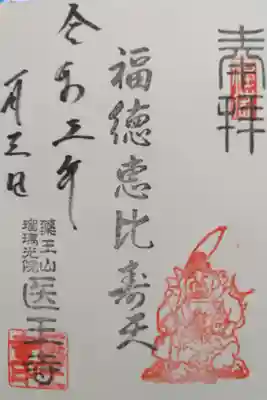 奉拝
福徳恵比寿天
令和三年
一月三日
薬王山
瑠璃光院
医王寺